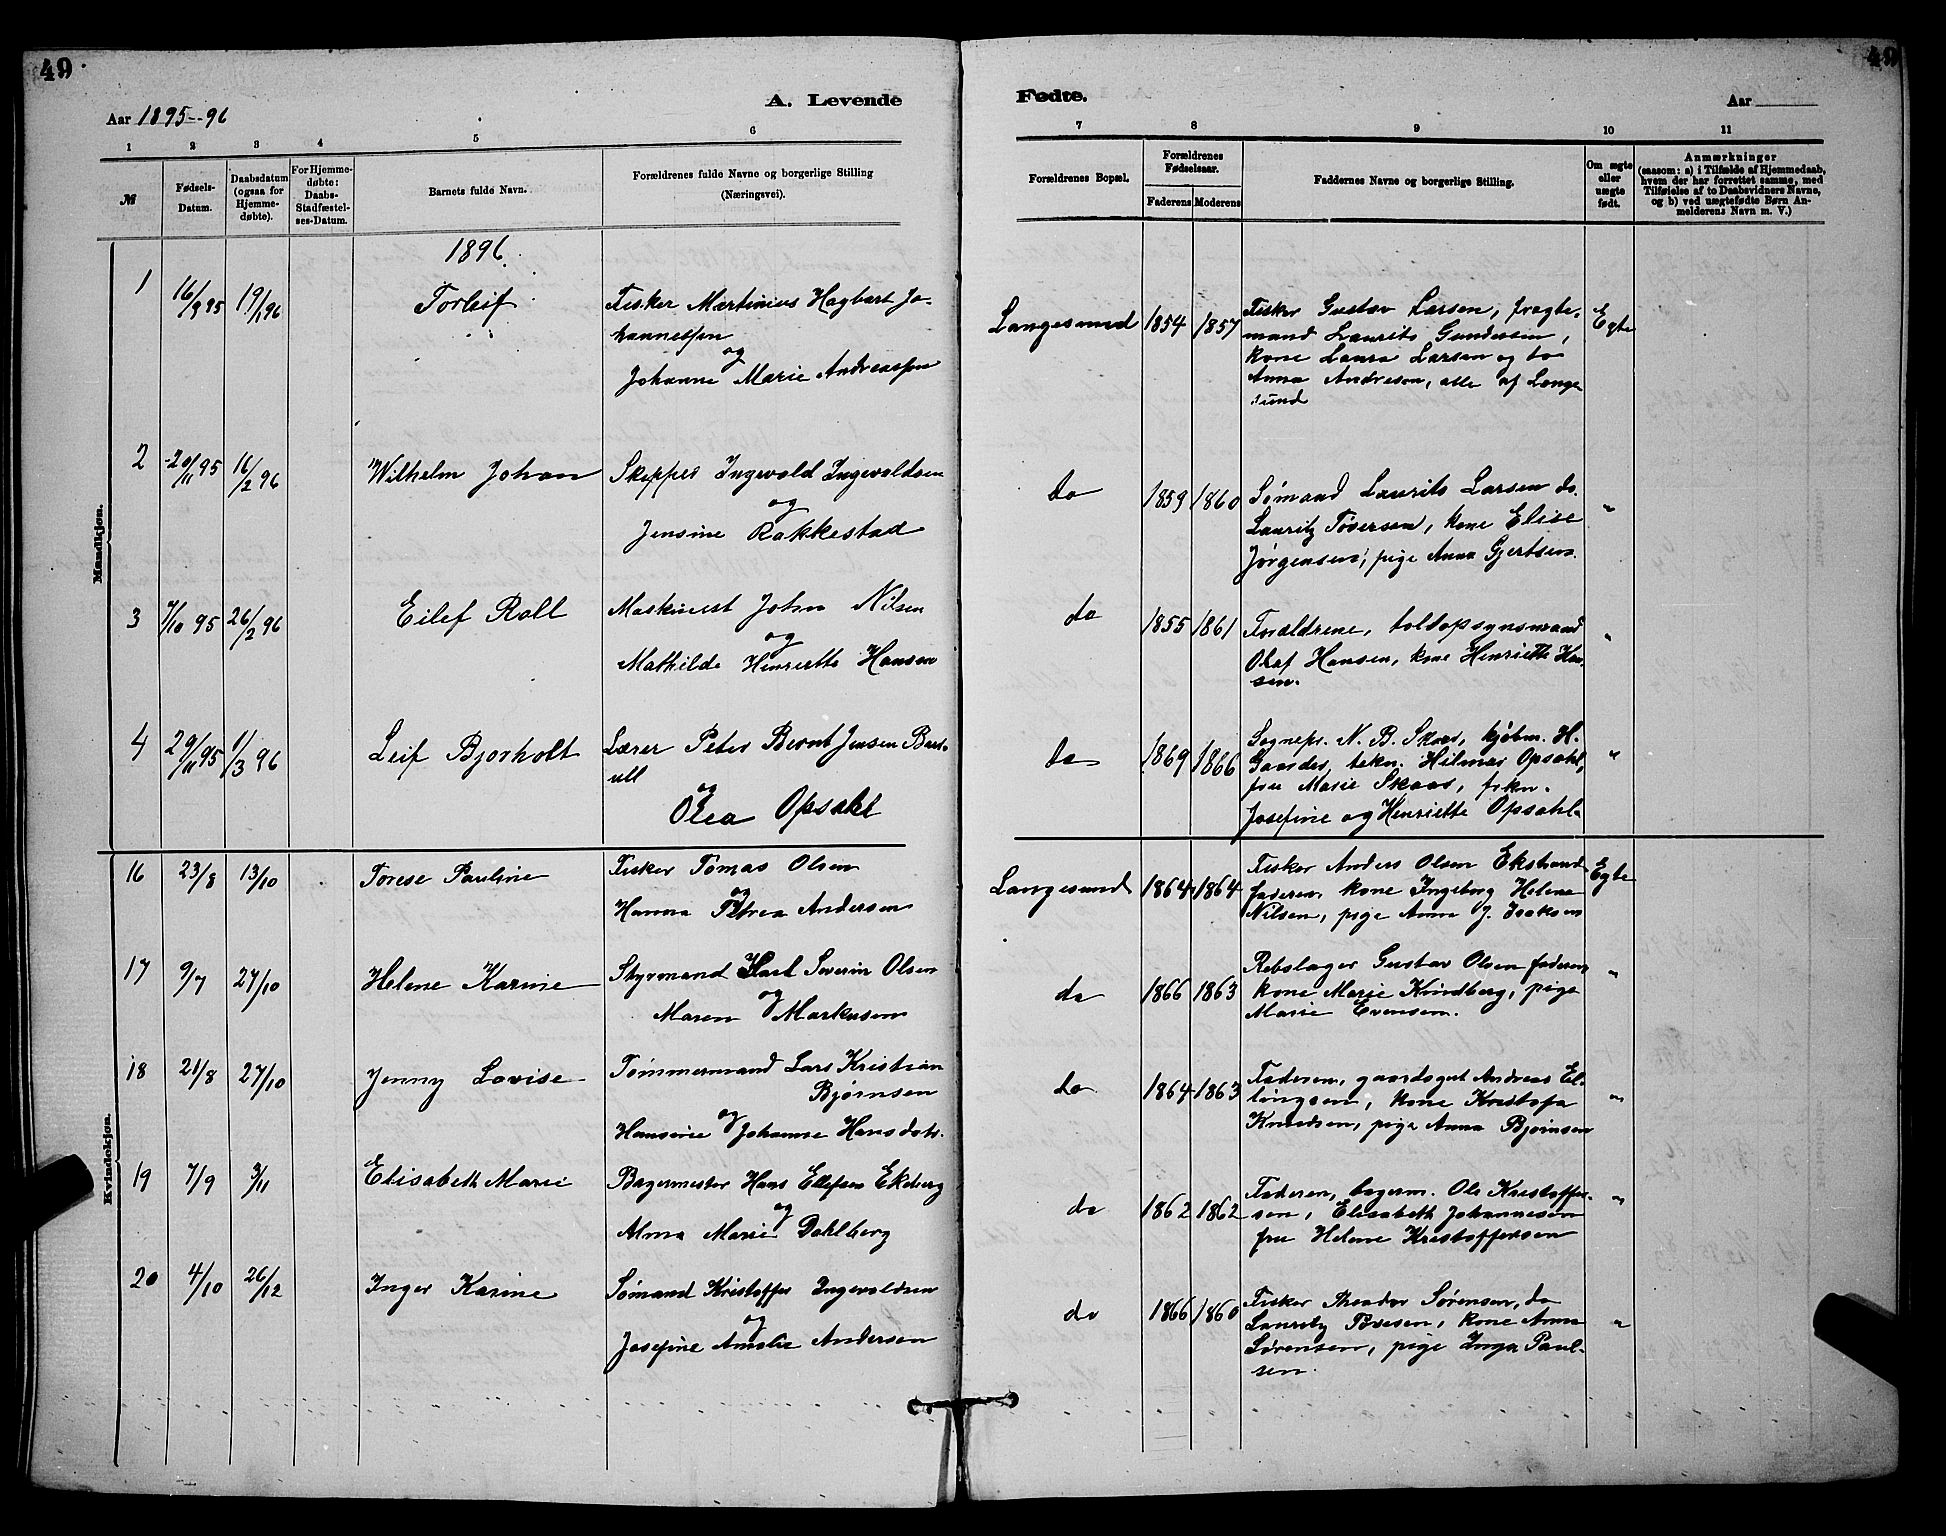 49
49
Aar 1895-96
A. Levende
Fødte.
Aar
1 2 3 4 5 6
7 8 9 10 11
№
Fødsels-
Datum.
Daabsdatum
(ogsaa for
Hjemme-
døbte).
For Hjemme-
døbte:
Daabs-
Stadfæstel-
ses-Datum.
Barnets fulde Navn.
Forældrenes fulde Navne og borgerlige Stilling
(Næringsvei).
Forældrenes Bopæl.
Forældrenes
Fødselsaar.
Faderens Moderens
Faddernes Navne og borgerlige Stilling.
Om ægte
eller
uægte
født.
Anmærkninger
(saasom: a) i Tilfælde af Hjemmedaab,
hvem der har forrettet samme, med
Tilføielse af to Daabsvidners Navne,
og b) ved uægtefødte Børn An-
melderens Navn m. V.)
Mandkjøn.
1896.
1 16/9 95 19/1 96 Torleif
Fisker Martinius Hagbart Jo-
hannessen
og
Johanne Marie Andreassen
Langesund 1854 1857
Fisker Gustav Larsen, fragte-
mand Laurits Gundersen,
kone Laura Larsen og do
Anna Andresen, alle af Lange-
sund
Egte
2 20/11 95 16/2 96 Wilhelm Johan
Skipper Ingevald Ingevaldsen
og
Jensine Rakkestad
do 1859 1860
Sømand Laurits Larsen do.
Lauritz Tøversen, kone Elise
Jørgensen, pige Anna Gjertsen.
"
3 7/10 95 26/2 96 Eilef Roll
Maskinist John Nilsen
og
Mathilde Henriette Hansen
do 1855 1861
Forældrene, toldopsynsmand
Olaf Hansen, kone Henriette Han-
sen.
"
4 29/11 95 1/3 96 Leif Bjorholt
Lærer Peter Bernt Jensen
ull
og
Olea Opsahl
do 1869 1866
Sognepr. N. B. Skaar, kjøbm. H.
Gaarder, tekn. Hilmar Opsahl,
fru Marie Skaar, frkn.
Josefine og Henriette Opsahl.
"
Kvindekjøn.
16 23/8 13/10 Torese Pauline
Fisker Tomas Olsen
og
Hanna Petrea Andersen
Langesund 1864 1864
Fisker Anders Olsen Ekstrand
faderen, kone Ingeborg Helene
Nilsen, pige Anna J. Isaksen
Egte
17 9/7 27/10 Helene Karine
Styrmand Karl Severin Olsen
og
Maren Markusen
do 1866 1863
Rebslager Gustav Olsen faderen
kone Marie Kindberg, pige
Marie Evensen.
"
18 21/8 27/10 Jenny Lovise
Tømmermand Lars Kristian
Bjørnsen
og
Hansine Johanne Hansdatr.
do 1864 1863
Faderen, gaardsgut Andreas El-
lingsen, kone Kristofa
Knudsen, pige Anna Bjørnsen
"
19 7/9 3/11 Elisabeth Marie
Bagermester Hans Ellefsen Ekeberg
og
Alma Marie Dahlberg
do 1862 1862
Faderen, bagerm. Ole Kristoffer-
sen, Elisabeth Johannesen
fru Helene Kristoffersen
"
20 4/10 26/12 Inger Karine
Sømand Kristoffer Ingevaldsen
og
Josefine Amalie Andersen
do 1866 1860
Fisker Theodor Sørensen, do
Lauritz Tøvesen, kone Anna
Sørensen, pige Inga Paul-
sen.
"